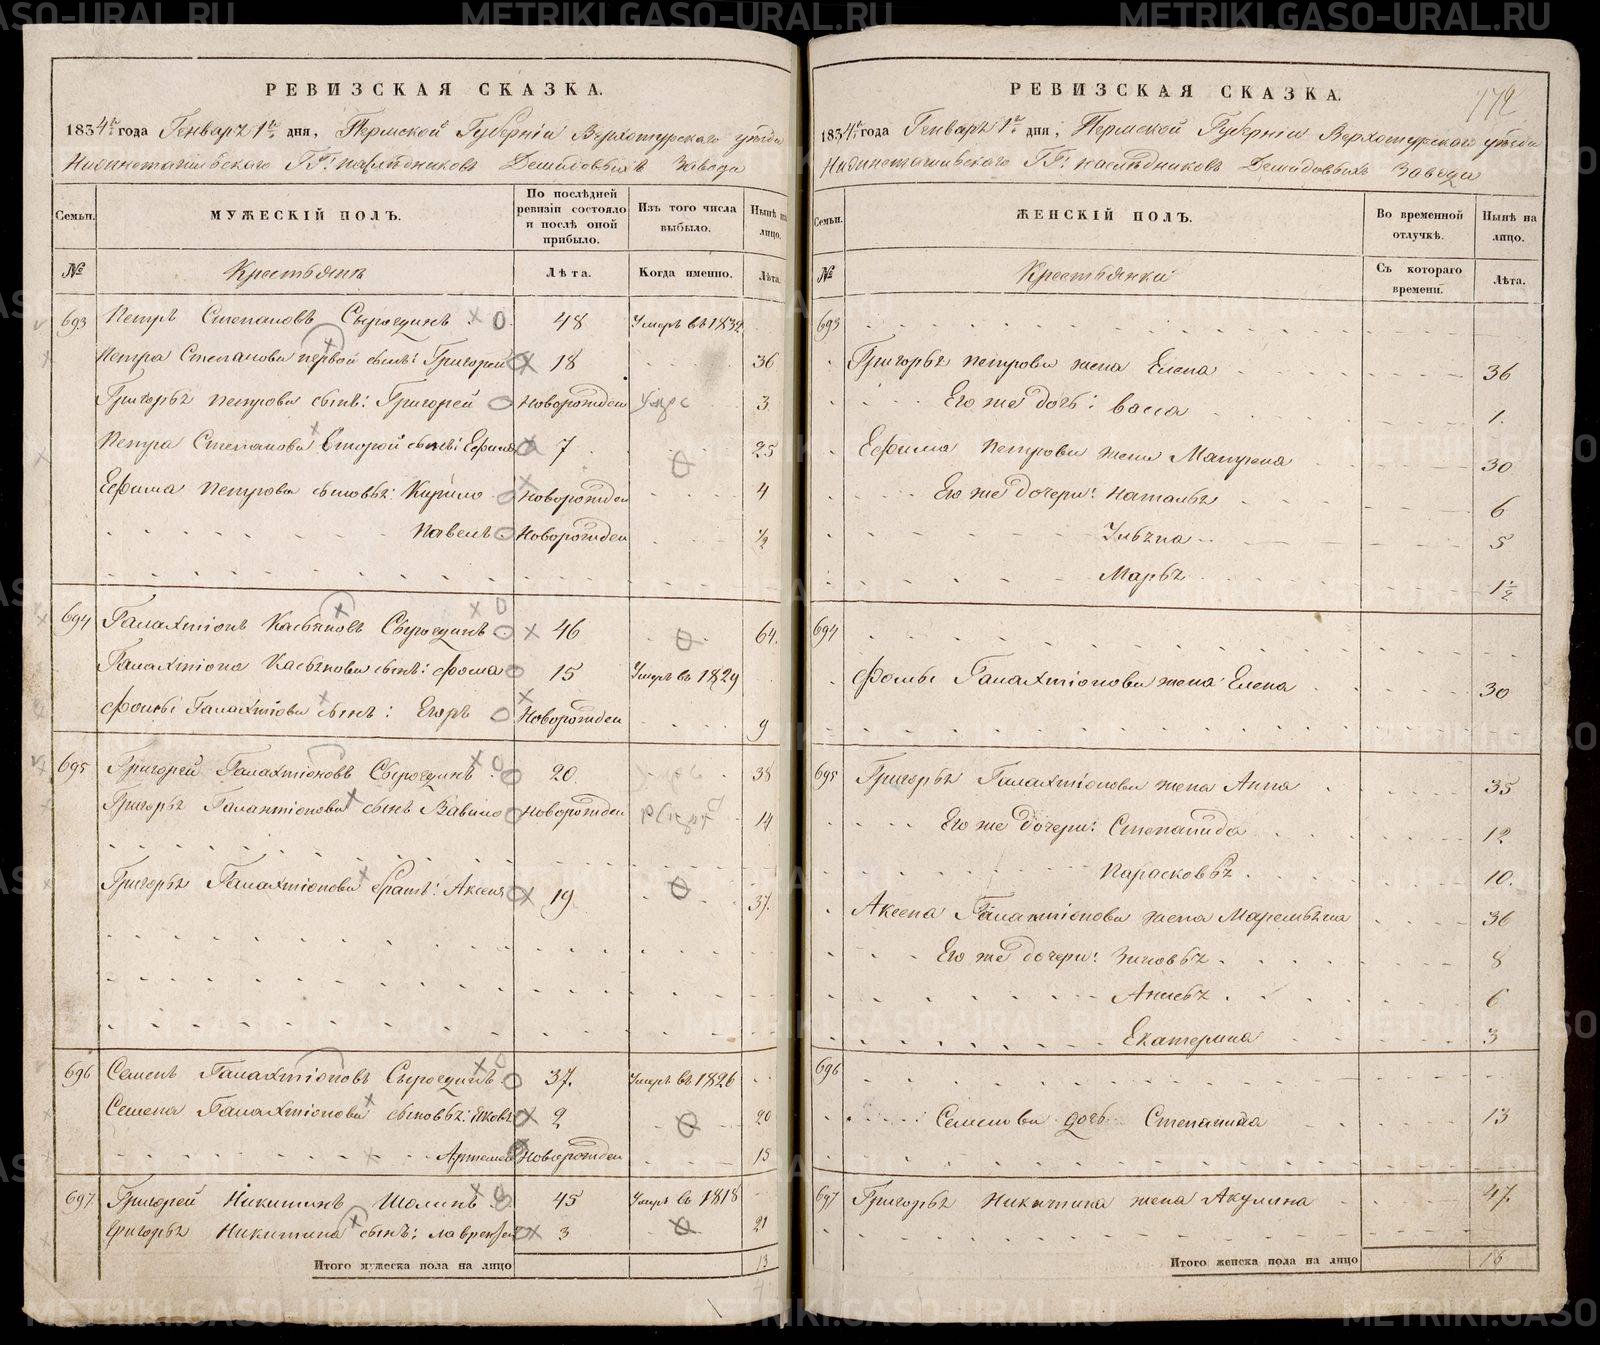 РЕВИЗСКАЯ СКАЗКА.
1834го года Генваря 1го дня, Пермской Губерніи Верхотурскаго уѣзда
Нижнетагильскаго ГГ: наслѣдниковъ Демидовыхъ Завода
Семьи.
МУЖЕСКІЙ ПОЛЪ.
По послѣдней ревизіи состояло и послѣ оной прибыло.
Изъ того числа выбыло.
Нынѣ на лицо.
№
Крестьянъ
Лѣта.
Когда именно.
Лѣта.
693 Петръ Степановъ Сыроединъ 48 Умеръ въ 1832
Петра Степанова первой сынъ: Григорей 18 36
Григорья Петрова сынъ: Григорей Новорожден 3
Петра Степанова второй сынъ: Ефимъ 7 25
Ефима Петрова сыновья: Кирило Новорожден 4
Павелъ Новорожден 1/2
694 Галахтіонъ Касьяновъ Сыроединъ 46 64.
Галахтіона Касьянова сынъ: Фома 15 Умеръ въ 1829
Фомы Галахтіонова сынъ: Егоръ Новорожден 9
695 Григорей Галахтіоновъ Сыроединъ 20. 38
Григорья Галахтіонова сынъ Вавило Новорожден 14
Григорья Галахтіонова братъ: Аксенъ 19 37.
696 Семенъ Галахтіоновъ Сыроединъ 37. Умеръ въ 1826
Семена Галахтіонова сыновья: Яковъ 2 20
Артемей Новорожден 15
697. Григорей Никитинъ Шолинъ 45 Умеръ въ 1818
Григорья Никитина сынъ: Лаврентей 3 21
Итого мужеска пола на лицо 13
172
РЕВИЗСКАЯ СКАЗКА.
1834го года Генваря 1го дня, Пермской Губерніи Верхотурскаго уѣзда
Нижнетагильскаго ГГ: наслѣдниковъ Демидовыхъ Завода
Семьи.
ЖЕНСКІЙ ПОЛЪ.
Во временной отлучкѣ.
Нынѣ на лицо.
№
Крестьянки
Съ котораго времени.
Лѣта.
693
Григорья Петрова жена Елена 36
Его же дочь: Васса 1.
Ефима Петрова жена Матрена 30
Его же дочери: Наталья 6
Ульяна 5
Марья 1 1/2
694
Фомы Галахтіонова жена Елена 30
695 Григорья Галахтіонова жена Анна 35
Его же дочери: Степанида 12
Парасковья 10.
Аксена Галахтіонова жена Маремьяна 36
Его же дочери: Зиновья 8
Анисья 6
Екатерина 3
696
Семенова дочь Степанида 13
697 Григорья Никитина жена Акулина 47.
Итого женска пола на лицо 16
METRIKI.GASO-URAL.RU